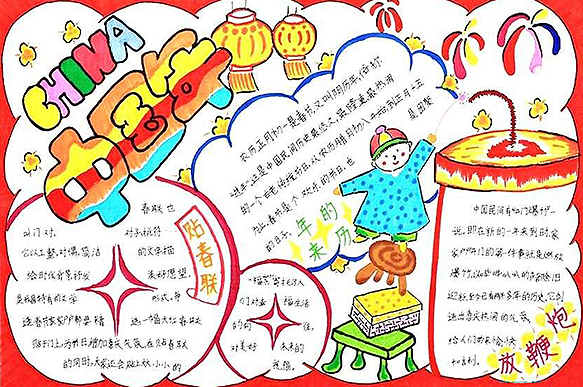 CHINA
中国年
农历正月初一是春节,又叫阴历年,俗称
“过年”这是中国民间历史最悠久、最隆重最热闹
的一个古老传统节日。从农历腊月初八开始到正月十五
春节是个欢乐的节日,也
是团聚
的日子。
年的
来历
春联也
叫门对、
对子、桃符
它以工整、对偶、简洁
的文字描
绘时代背景,抒发
美好愿望,
是我国特有的文学
形式,每
逢春节,家家户户都要精
选一幅大红春联
贴于门上,为节日增加喜庆气氛。在贴春联
的同时,大家还会贴上大小小的
贴春联
“福”字寄托了人
们对幸
福生活
的向
往,
对美好
未来的
祝愿。
中国民间有“开门爆竹”一
说。即在新的一年来到时,家
家户户开门的第一件事就是燃放
爆竹,以
的历史,它
造出喜庆热闹的气氛,
给人们带来愉快
和吉利。
放鞭炮